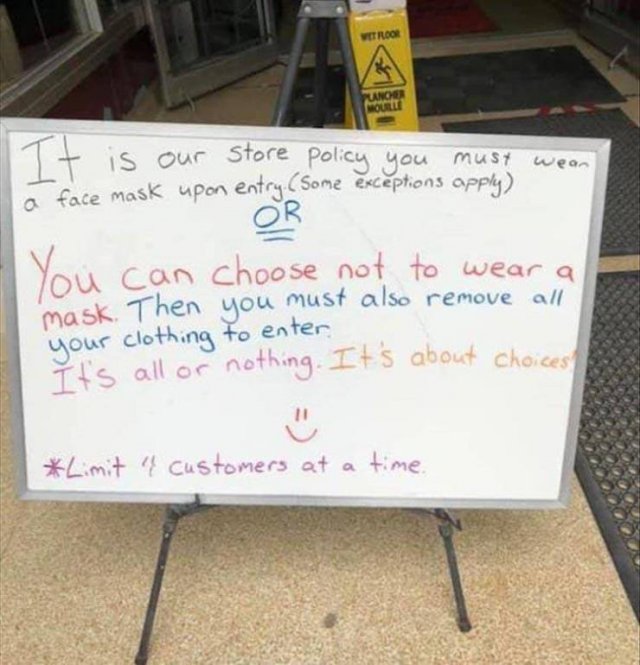 WET FLOOR
PLANCHER
MOUILLÉ
It is our store policy you must wear
a face mask upon entry. (Some exceptions apply)
OR
You can choose not to wear a
mask. Then you must also remove all
your clothing to enter.
It's all or nothing. It's about choices!
*Limit 4 customers at a time.